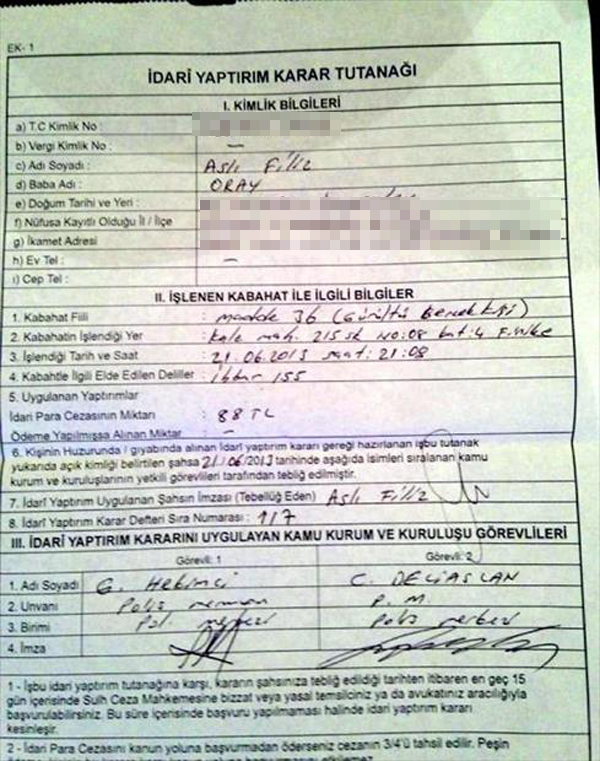 EK- 1
İDARİ YAPTIRIM KARAR TUTANAĞI
I. KİMLİK BİLGİLERİ
a) T.C Kimlik No :
b) Vergi Kimlik No : —
c) Adı Soyadı : Aslı Filiz
d) Baba Adı : ORAY
e) Doğum Tarihi ve Yeri :
f) Nüfusa Kayıtlı Olduğu İl / İlçe
g) İkamet Adresi
h) Ev Tel : —
ı) Cep Tel :
II. İŞLENEN KABAHAT İLE İLGİLİ BİLGİLER
1. Kabahat Fiili : madde 36 (Gürültü
2. Kabahatin İşlendiği Yer : Kale mah. 215 sk NO:08 kat:4 Finike
3. İşlendiği Tarih ve Saat : 21.06.2013 saat: 21:08
4. Kabahtle İlgili Elde Edilen Deliller : ihbar 155
5. Uygulanan Yaptırımlar
İdari Para Cezasının Miktarı : 88 TL
Ödeme Yapılmışsa Alınan Miktar : —
6. Kişinin Huzurunda / gıyabında alınan İdarî yaptırım kararı gereği hazırlanan işbu tutanak
yukarıda açık kimliği belirtilen şahsa 21/06/2013 tarihinde aşağıda isimleri sıralanan kamu
kurum ve kuruluşlarının yetkili görevlileri tarafından tebliğ edilmiştir.
7. İdarî Yaptırım Uygulanan Şahsın İmzası (Tebellüğ Eden) Aslı Filiz
8. İdarî Yaptırım Karar Defteri Sıra Numarası : 117
III. İDARİ YAPTIRIM KARARINI UYGULAYAN KAMU KURUM VE KURULUŞU GÖREVLİLERİ
Görevli: 1 Görevli: 2
1. Adı Soyadı G. Hekimci C. DELİASLAN
2. Unvanı Polis memuru P. M.
3. Birimi Pol. merkezi Polis merkezi
4. İmza
1 - İşbu idari yaptırım tutanağına karşı, kararın şahsınıza tebliğ edildiği tarihten itibaren en geç 15
gün içerisinde Sulh Ceza Mahkemesine bizzat veya yasal temsilciniz ya da avukatınız aracılığıyla
başvurulabilirsiniz. Bu süre içerisinde başvuru yapılmaması halinde idari yaptırım kararı
kesinleşir.
2 - İdari Para Cezasını kanun yoluna başvurmadan öderseniz cezanın 3/4'ü tahsil edilir. Peşin